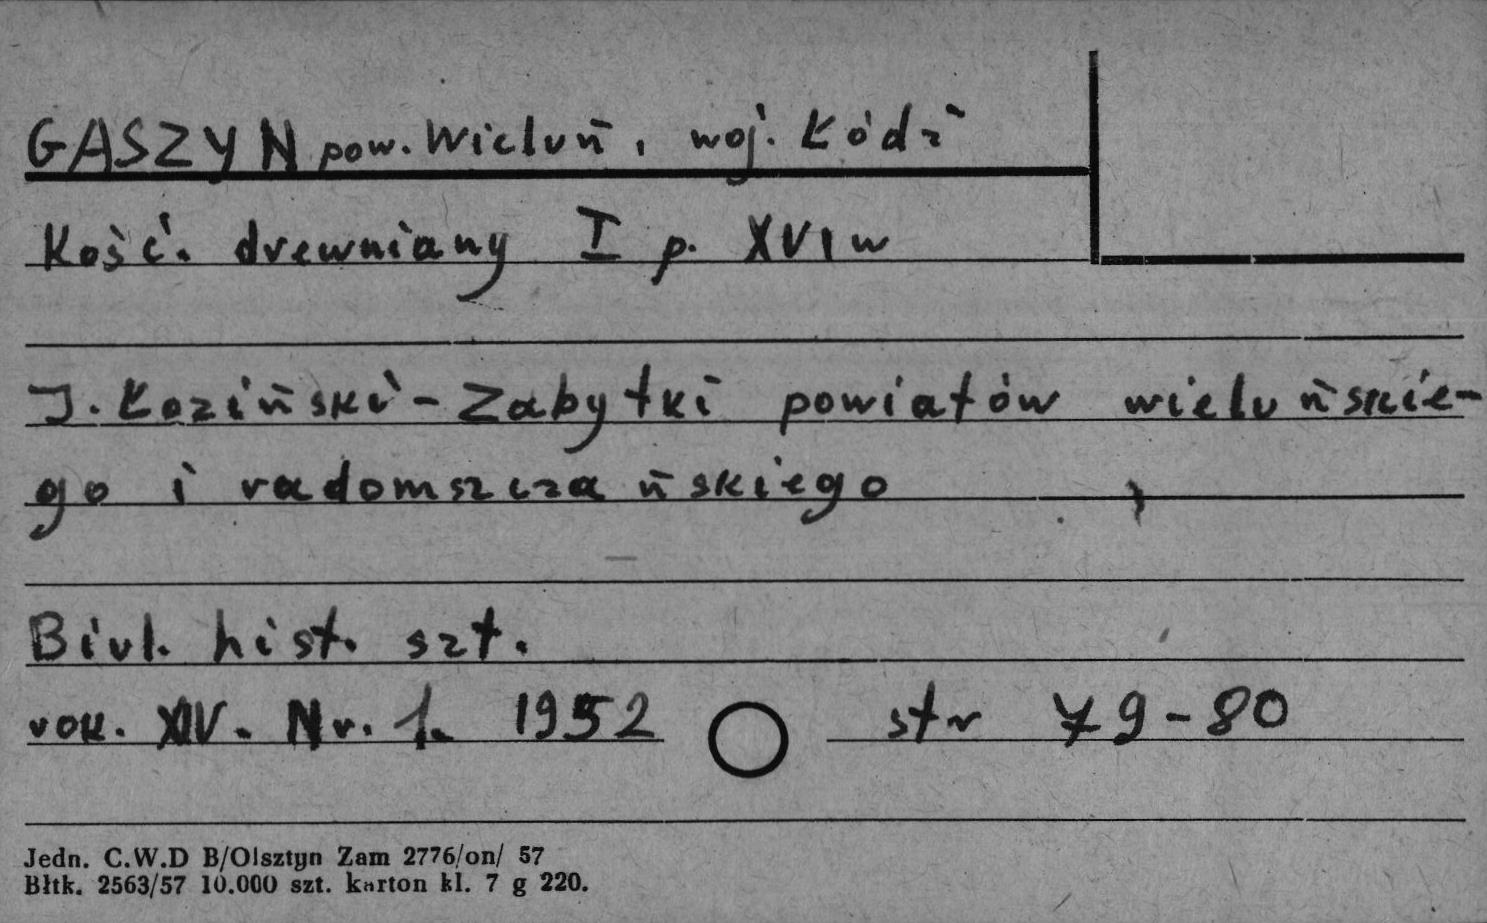 GASZYN pow. Wieluń, woj. Łódź
Kość. drewniany I p. XVI w
J. Łoziński - Zabytki powiatów wieluńskie-
go i radomszczańskiego
Biul. hist. szt.
rok. XIV. Nr. 1. 1952 str 79-80
Jedn. C.W.D B/Olsztyn Zam 2776/on/ 57
Błtk. 2563/57 10.000 szt. karton kl. 7 g 220.